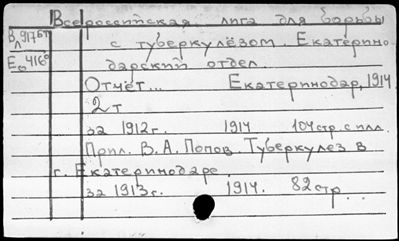 Всероссийская лига для борьбы
с туберкулёзом. Екатерино-
дарский отдел
Отчёт... Екатеринодар, 1914
2 т
за 1912 г. 1914 104 стр. с илл.
Прил. В. А. Попов. Туберкулез в
г. Екатеринодаре
за 1913 г. 1914. 82 стр.